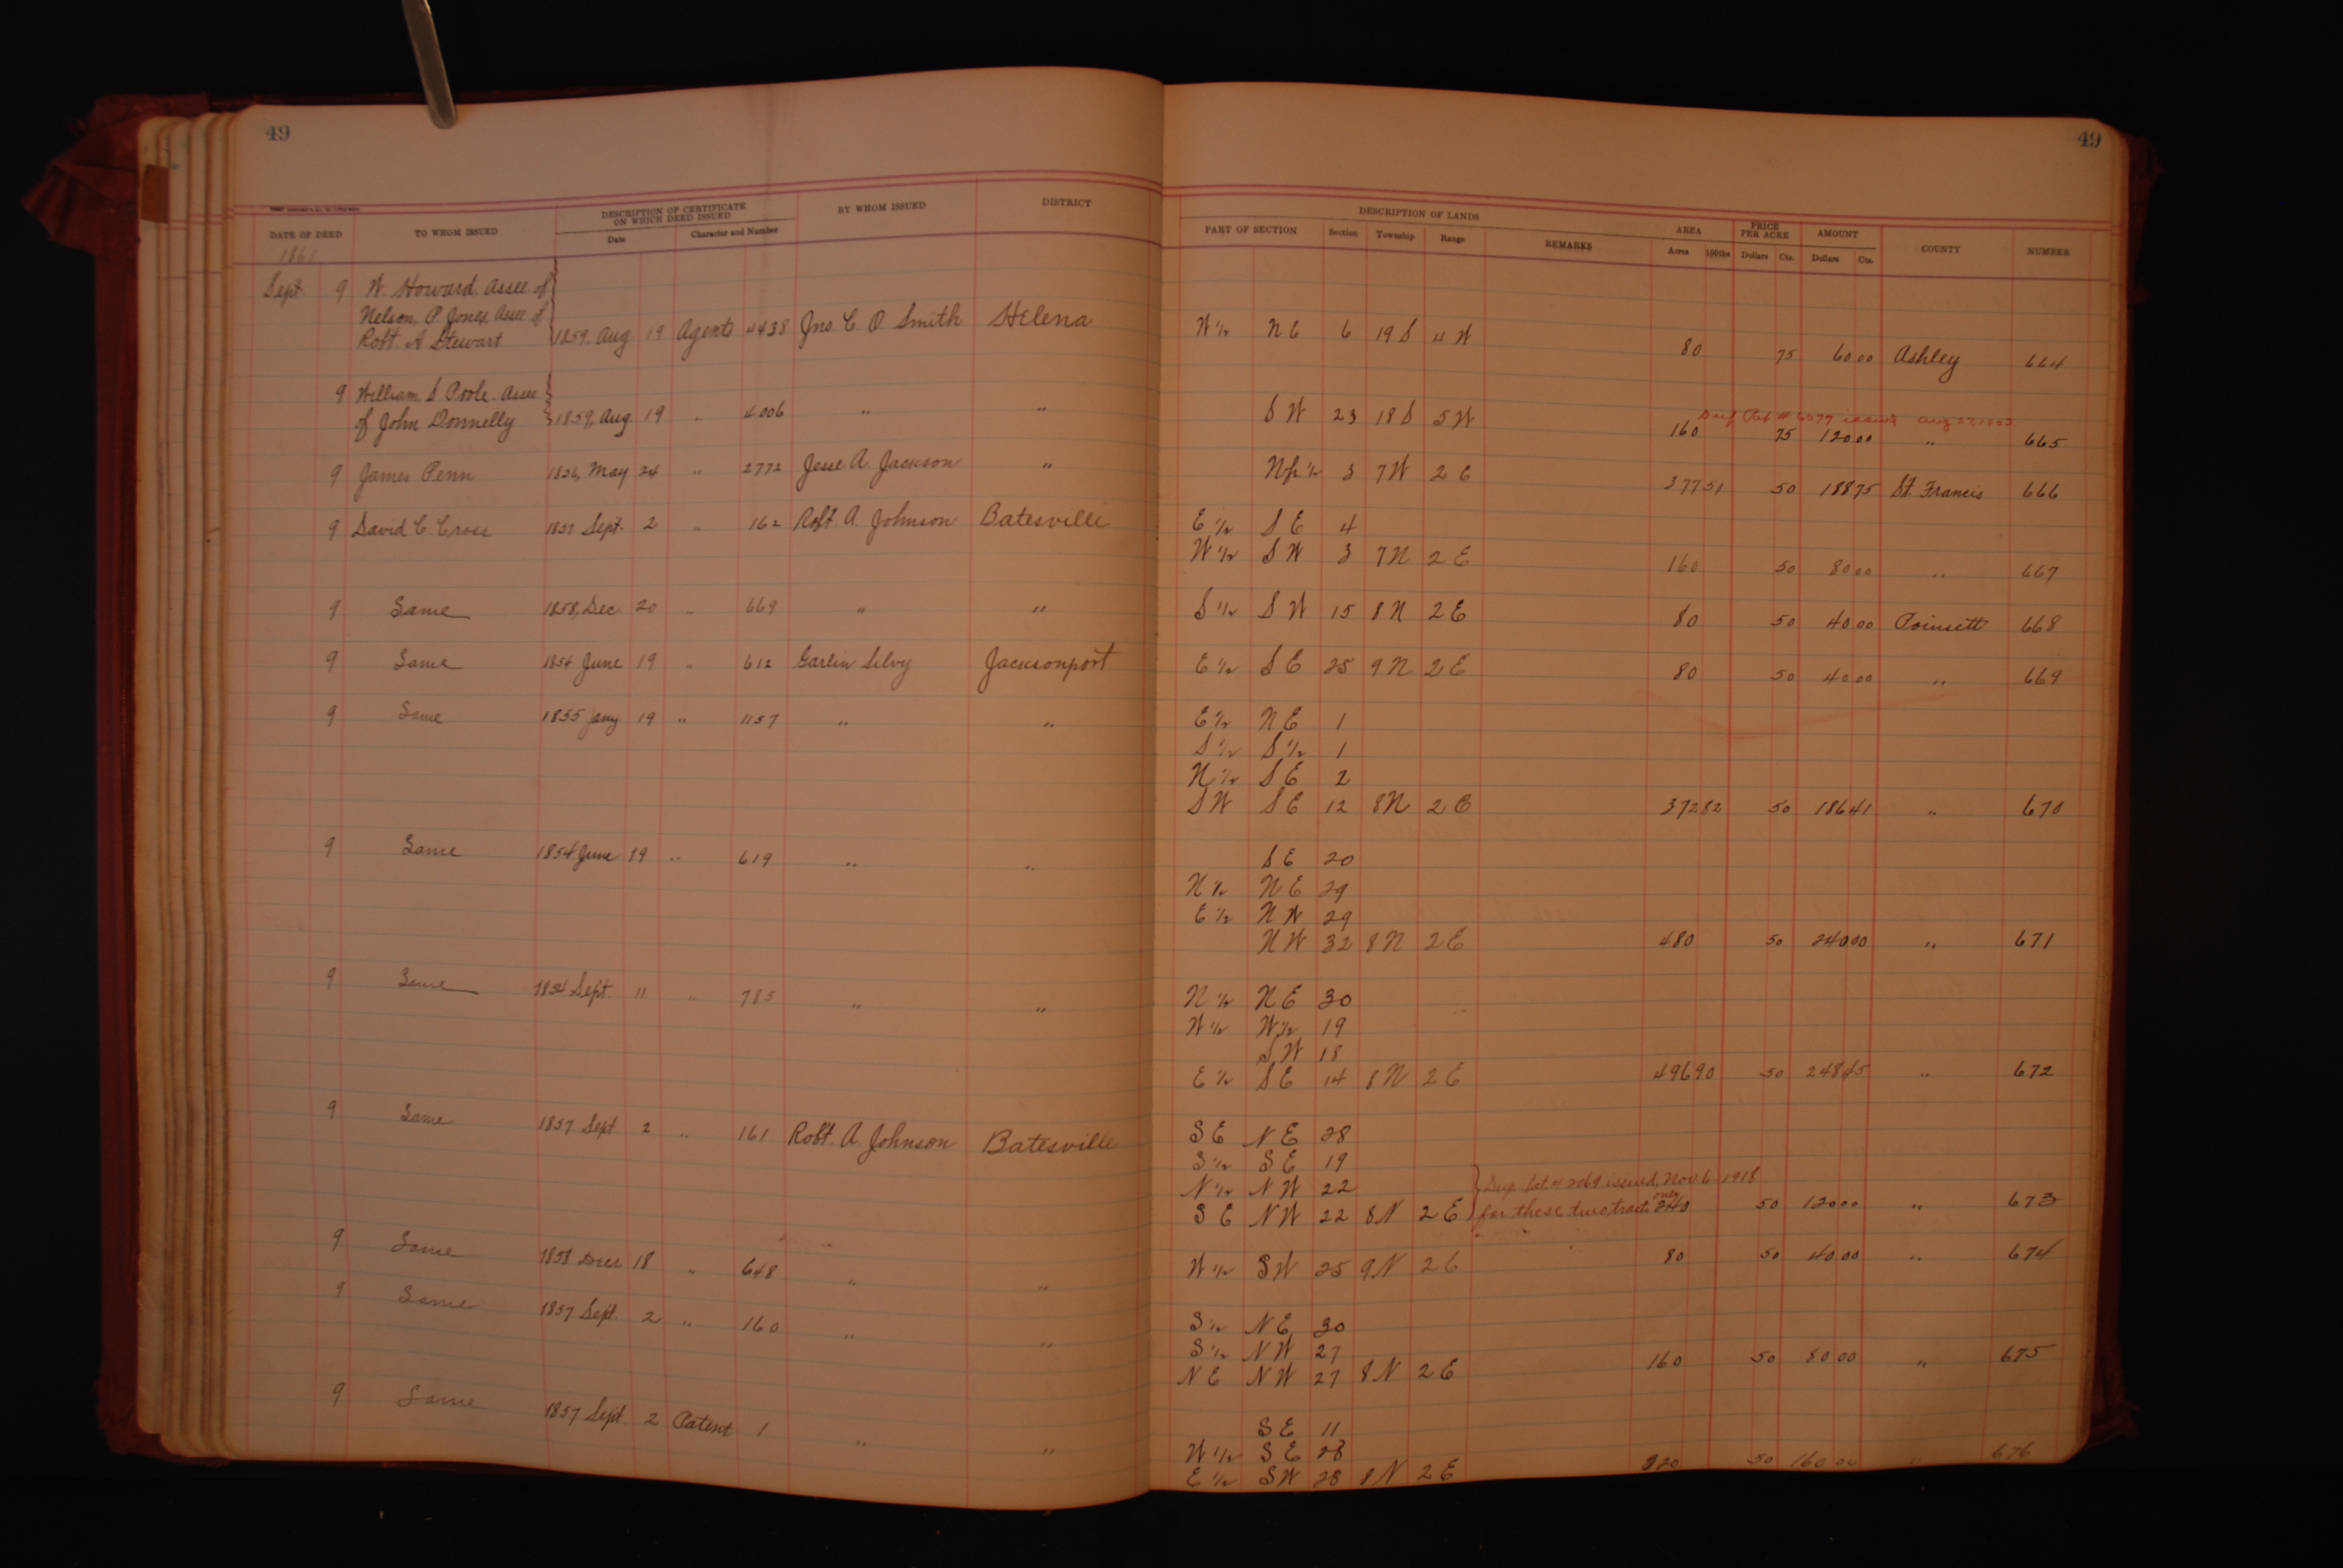 49
49
DATE OF DEED TO WHOM ISSUED DESCRIPTION OF CERTIFICATE ON WHICH DEED ISSUED Date Character and Number BY WHOM ISSUED DISTRICT
DESCRIPTION OF LANDS PART OF SECTION Section Township Range REMARKS AREA Acres 100ths PRICE PER ACRE Dollars Cts. AMOUNT Dollars Cts. COUNTY NUMBER
1861
Sept 9 W. Howard. Assee of
Nelson, P. Jones, Assee of
Robt. A Stewart 1859. Aug 19 Agents 4438 Jno. C O Smith Helena W 1/2 N E 6 19 S 4 W 80 75 60 00 Ashley 664
9 William S Poole. Assee
of John Donnelly 1859, Aug. 19 " 4006 " " S W 23 18 S 5 W 160 75 120 00 " 665
issued Aug 27,
9 James Penn 1856, May 24 " 2772 Jesse A. Jackson " Nfr 1/2 3 7 N 2 E 377 51 50 188 75 St. Francis 666
9 David C. Cross 1857 Sept. 2 " 162 Robt. A. Johnson Batesville E 1/2 S E 4
W 1/2 S W 3 7 N 2 E 160 50 80 00 " 667
9 Same 1858, Dec 20 " 669 " " S 1/2 S W 15 8 N 2 E 80 50 40 00 Poinsett 668
9 Same 1854 June 19 " 612 Garlin Silvy Jacksonport E 1/2 S E 25 9 N 2 E 80 50 40 00 " 669
9 Same 1855 Jany 19 " 1157 " " E 1/2 N E 1
S 1/2 S 1/2 1
N 1/2 S E 2
S W S E 12 8 N 2 E 372 82 50 186 41 " 670
9 Same 1854 June 19 " 619 " " S E 20
N 1/2 N E 29
E 1/2 N W 29
N W 32 8 N 2 E 480 50 240 00 " 671
9 Same 1854 Sept 11 " 785 " " N 1/2 N E 30
W 1/2 W 1/2 19
S W 18
E 1/2 S E 14 8 N 2 E 496 90 50 248 45 " 672
9 Same 1857 Sept 2 " 161 Robt. A. Johnson Batesville S E N E 28
S 1/2 S E 19
N 1/2 N W 22 Dup. Pat. # 2069 issued, Nov 6 1918
S E N W 22 8 N 2 E for these two tracts only 240 50 120 00 " 673
9 Same 1858 Decr 18 " 648 " " W 1/2 S W 25 9 N 2 E 80 50 40 00 " 674
9 Same 1857 Sept. 2 " 160 " " S 1/2 N E 30
S 1/2 N W 27
N E N W 27 8 N 2 E 160 50 80 00 " 675
9 Same 1857 Sept. 2 Patent 1 " " S E 11
W 1/2 S E 28
E 1/2 S W 28 8 N 2 E 320 50 160 00 " 676